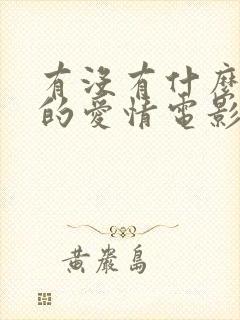 有沒有什麼
的愛情電影
黃巖島